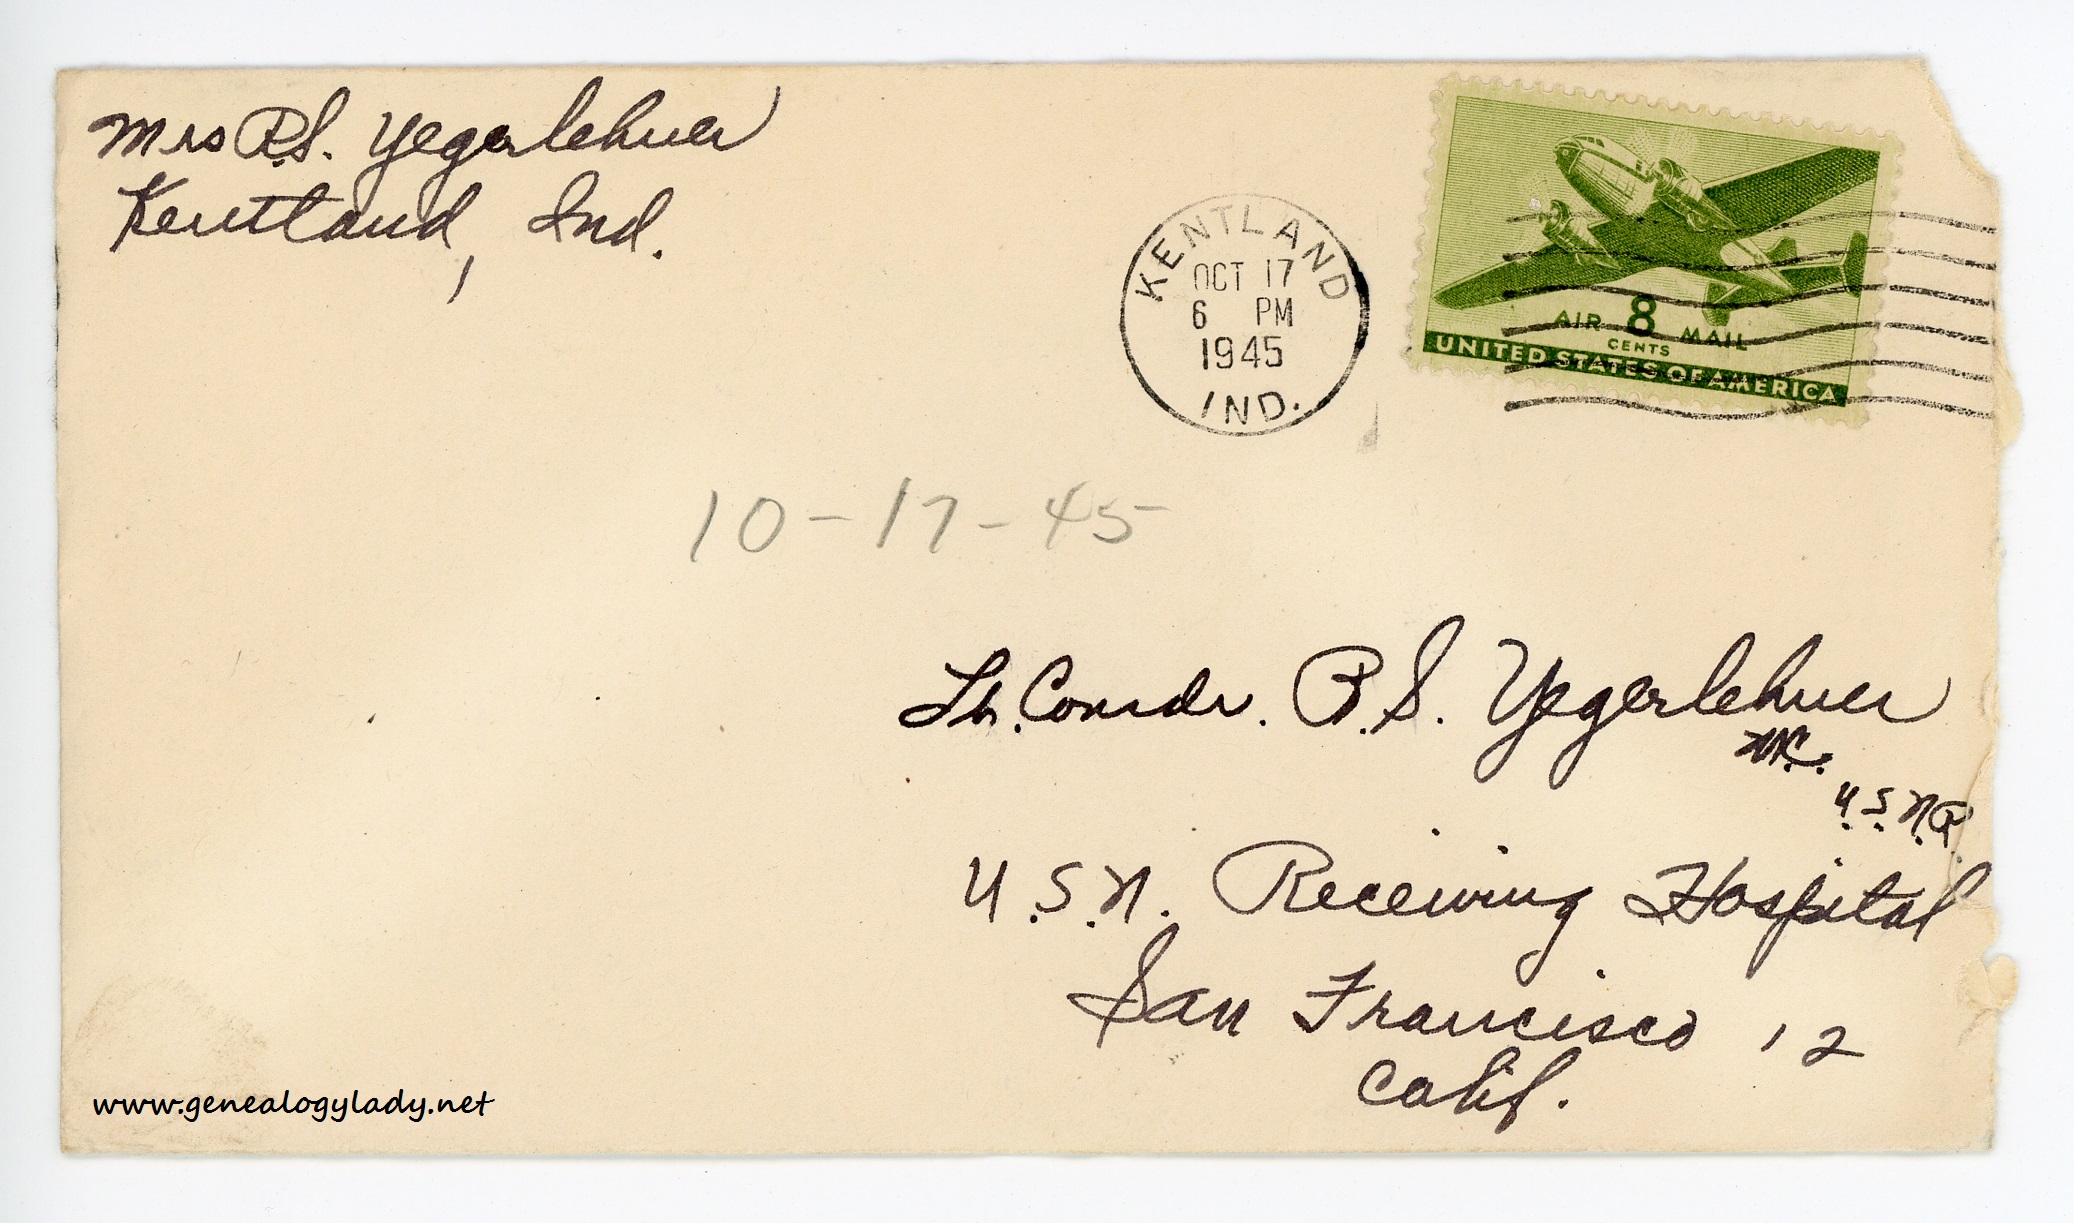 Mrs R.S. Yegerlehner
Kentland, Ind.
KENTLAND
OCT 17
6 PM
1945
IND.
AIR 8 MAIL
CENTS
UNITED STATES OF AMERICA
10-17-45
Lt. Comdr. R.S. Yegerlehner
M.C.
U.S.N.R.
U.S.N. Receiving Hospital
San Francisco 12
Calif.
www.genealogylady.net